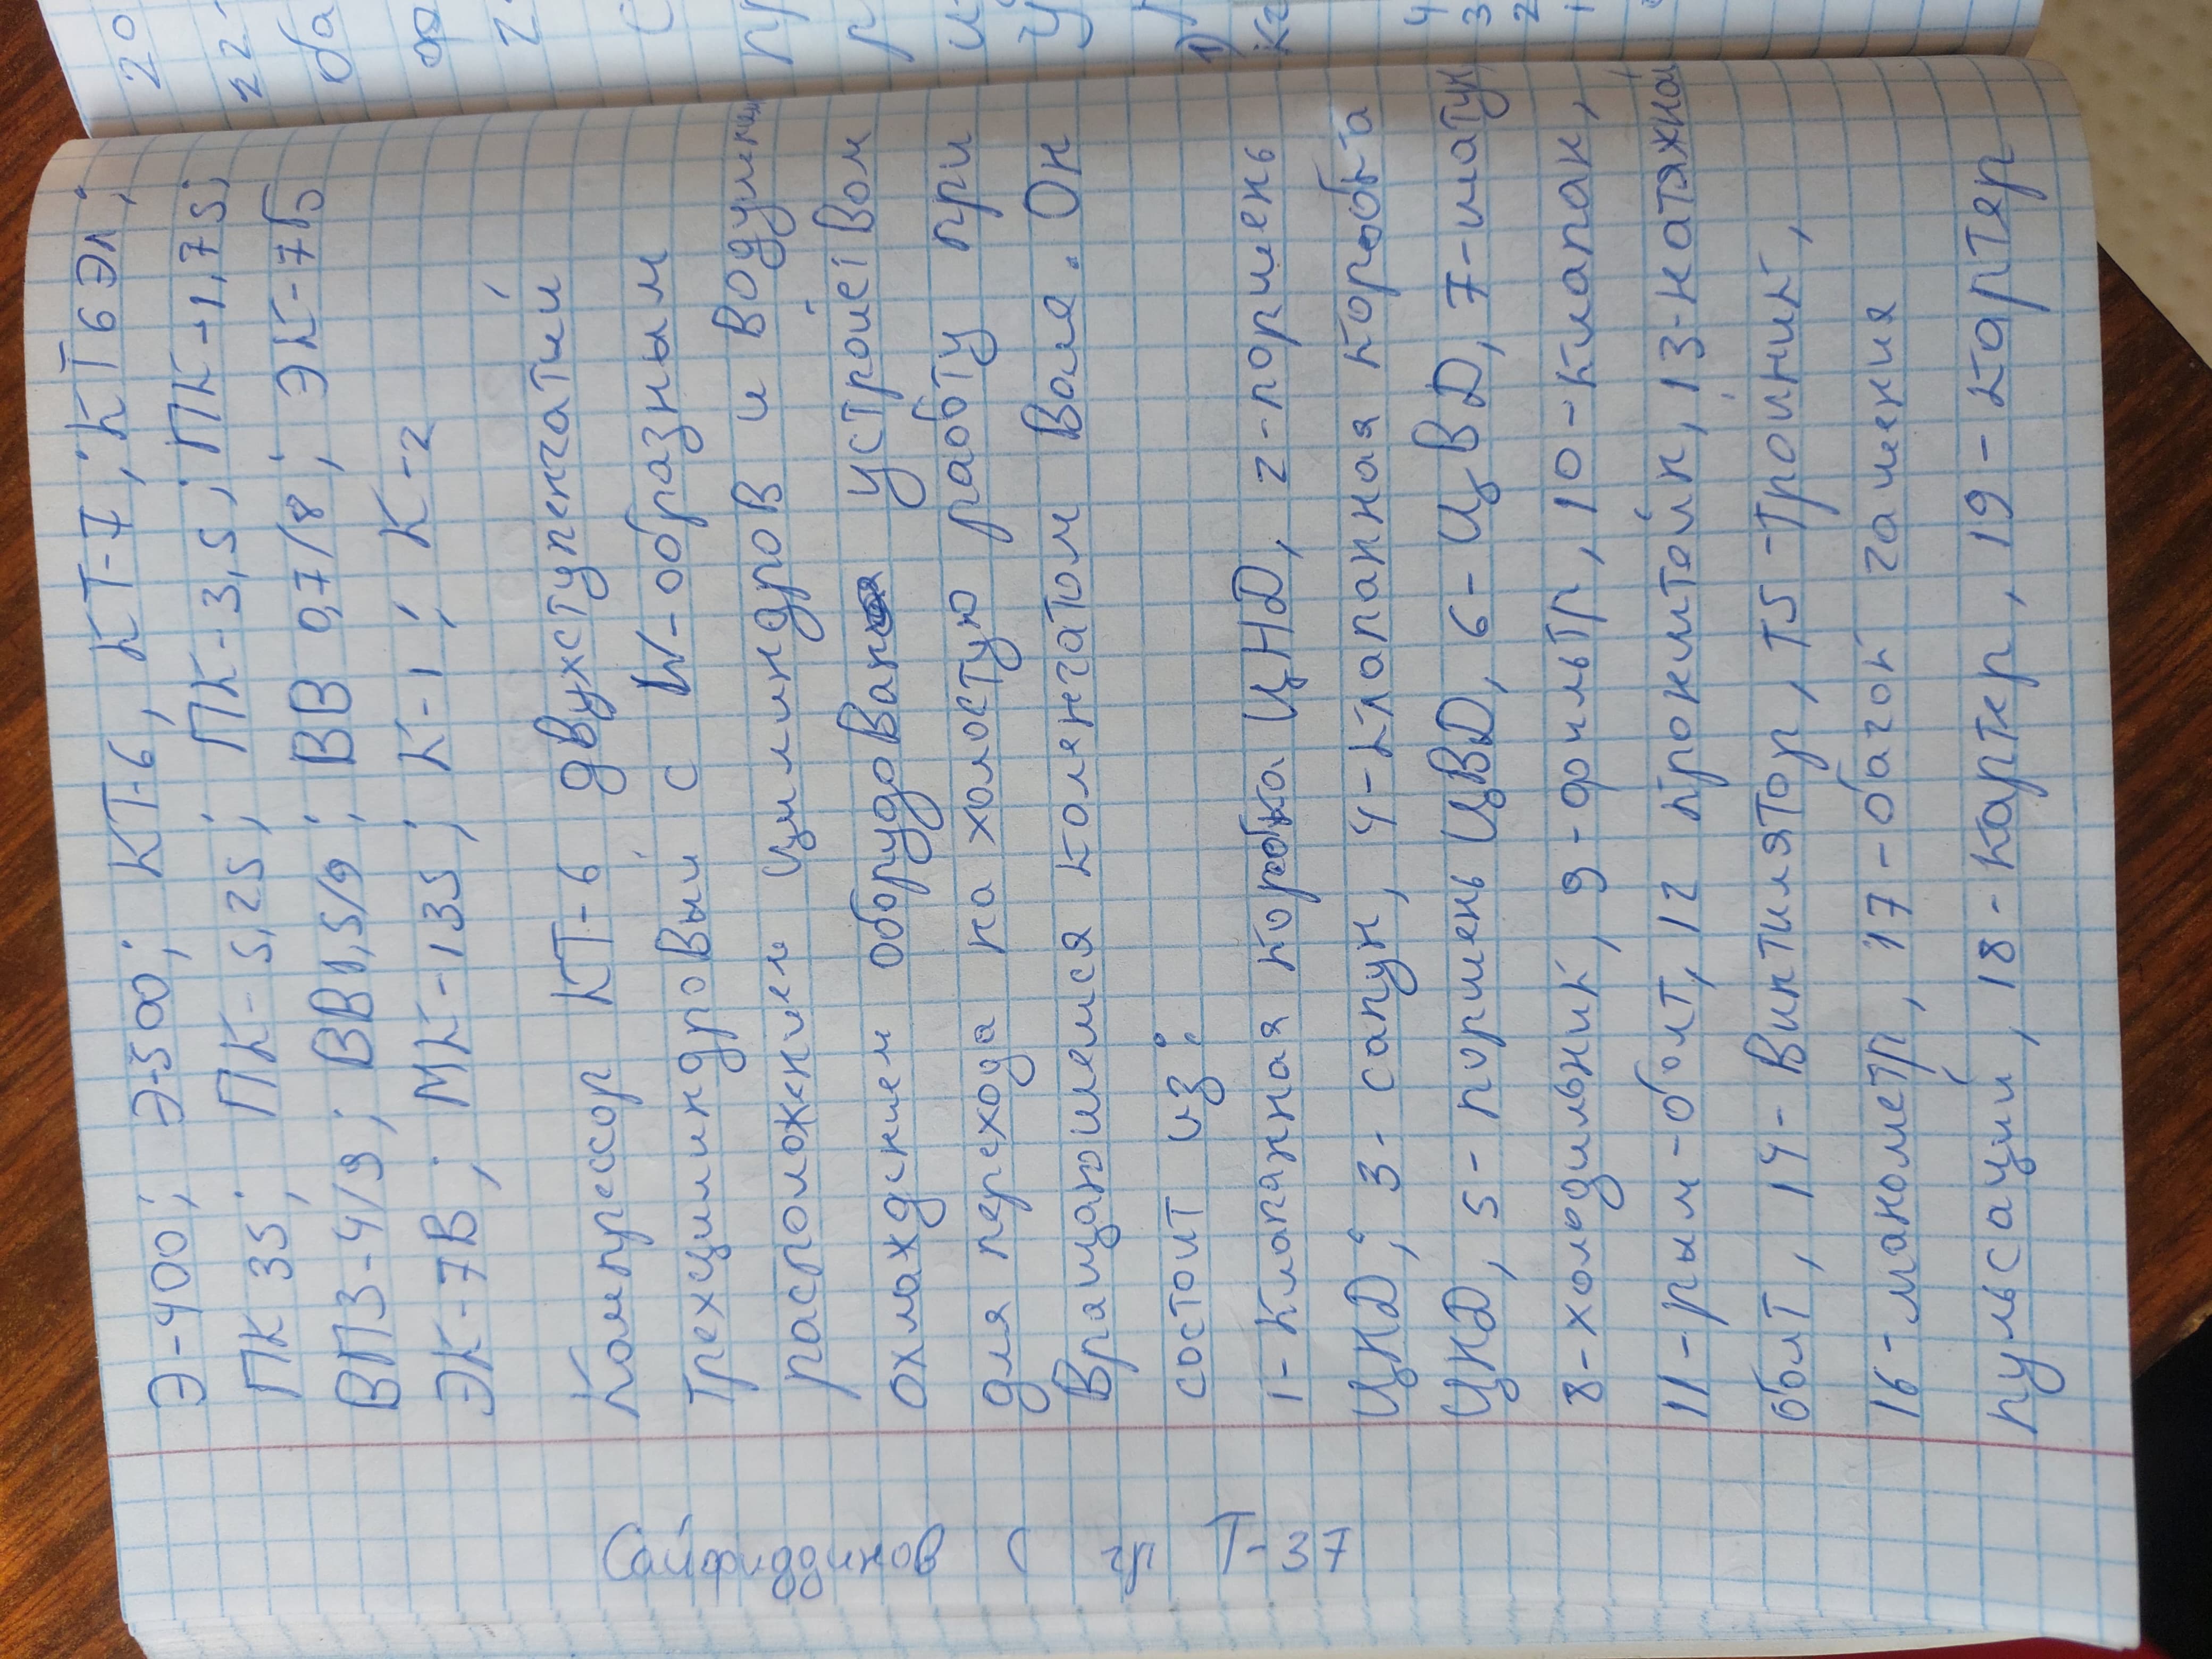 Э-400; Э-500; КТ-6, КТ-7; КТ6Эл;
ПК 35; ПК-5,25; ПК-3,5; ПК-1,75;
ВПЗ-4/9; ВВ1,5/9; ВВ 0,7/8; ЭК-7Б
ЭК-7В; МК-135; К-1; К-2
Компрессор КТ-6 двухступенчатий
Трехцилиндровый с W-образным
расположением цилиндров и
охлаждением оборудован устройством
для перехода на холостую работу при
Вращаюшемся коленчатом Вале. Он
состоит из:
1-Клапанная коробка ЦНД, 2-поршень
ЦНД; 3-сапун, 4-клапанная коробка
ЦНД, 5-поршень ЦВД, 6-ЦВД, 7-шатун
8-холодильник, 9-фильтр, 10-клапан,
11-рым-болт, 12 Кронштейн, 13-натяжной
болт, 14-Винтилятор, 15-Тройник,
16-манометр, 17-бачок гашения
пульсаций, 18-Картер, 19-картер
Сайфиддинов С гр Т-37